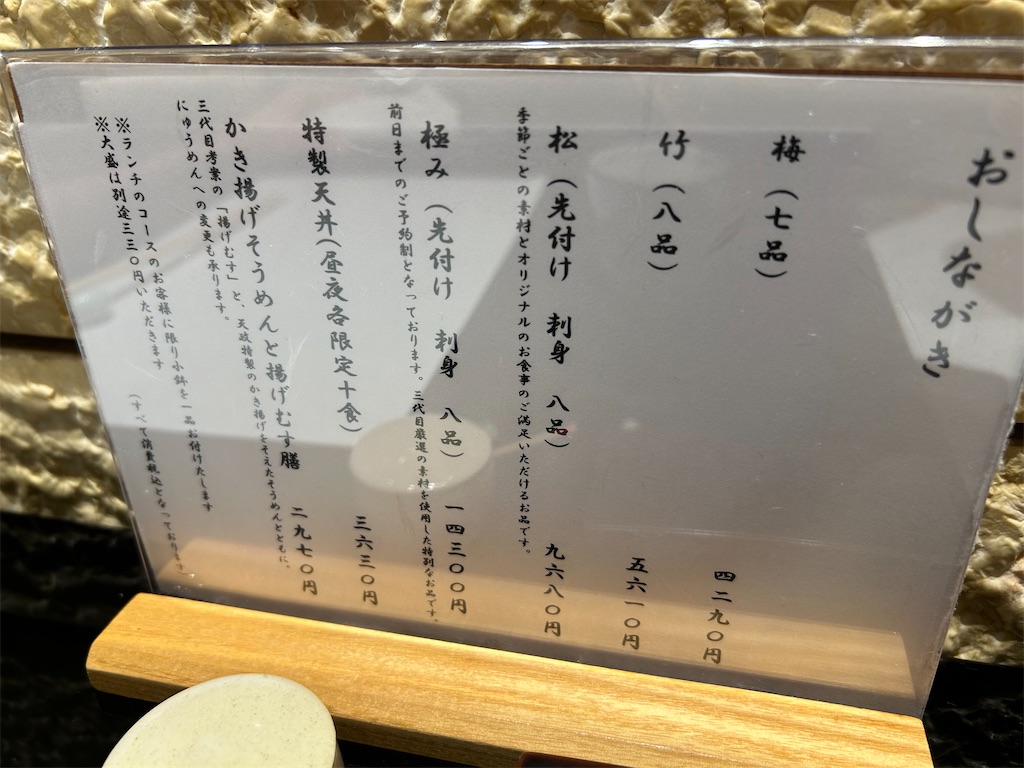 おしながき
梅（七品） 四二九〇円
竹（八品） 五六一〇円
松（先付け 刺身 八品） 九六八〇円
季節ごとの素材とオリジナルのお食事のご満足いただけるお品です。
極み（先付け 刺身 八品） 一四三〇〇円
前日までのご予約制となっております。三代目厳選の素材を使用した特別なお品です。
特製天丼（昼夜各限定十食） 三六三〇円
かき揚げそうめんと揚げむす膳 二九七〇円
三代目考案の「揚げむす」と、天政特製のかき揚げをそえたそうめんとともに。
にゅうめんへの変更も承ります。
※ランチのコースのお客様に限り小鉢を一品お付けたします
※大盛は別途三三〇円いただきます
（すべて消費税込となっております